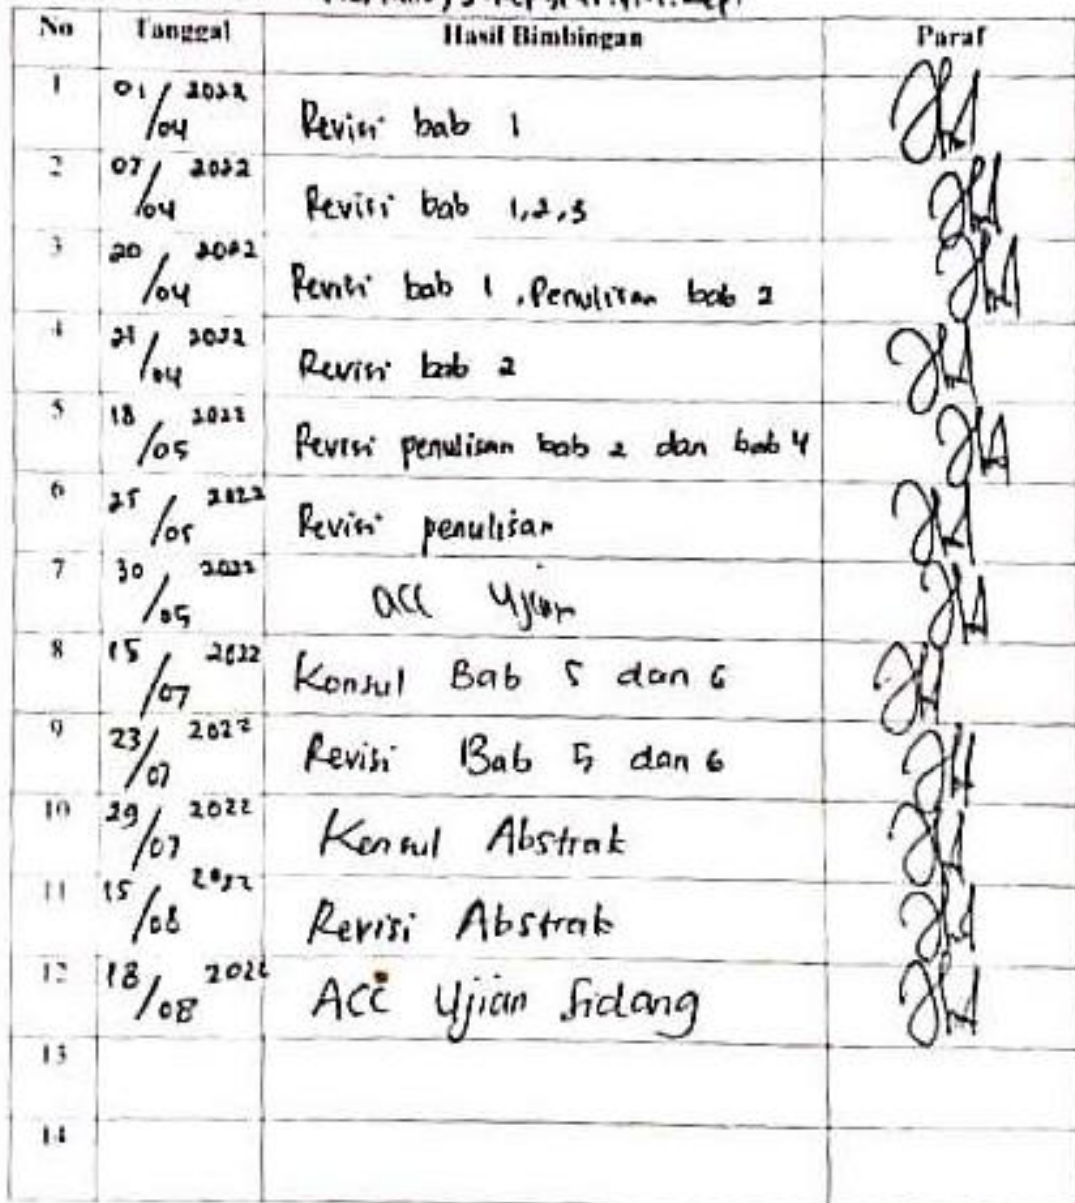 No Tanggal Hasil Bimbingan Paraf
1 01/04 2022 Revisi bab 1
2 07/04 2022 Revisi bab 1,2,3
3 20/04 2022 Revisi bab 1, Penulisan bab 2
4 /04 2022 Revisi bab 2
5 18/05 2022 Revisi penulisan bab 2 dan bab 4
6 25/05 2022 Revisi penulisan
7 30/05 2022 acc Ujian
8 15/07 2022 Konsul Bab 5 dan 6
9 23/07 2022 Revisi Bab 5 dan 6
10 29/07 2022 Konsul Abstrak
11 15/08 2022 Revisi Abstrak
12 18/08 2022 ACC Ujian Sidang
13
14